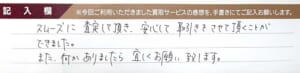 記入欄 ※今回ご利用いただきました買取サービスの感想を、手書きにてご記入ください。
スムーズに査定して頂き、安心して取引きをさせて頂くことが
できました。
また、何かありましたら宜しくお願い致します。